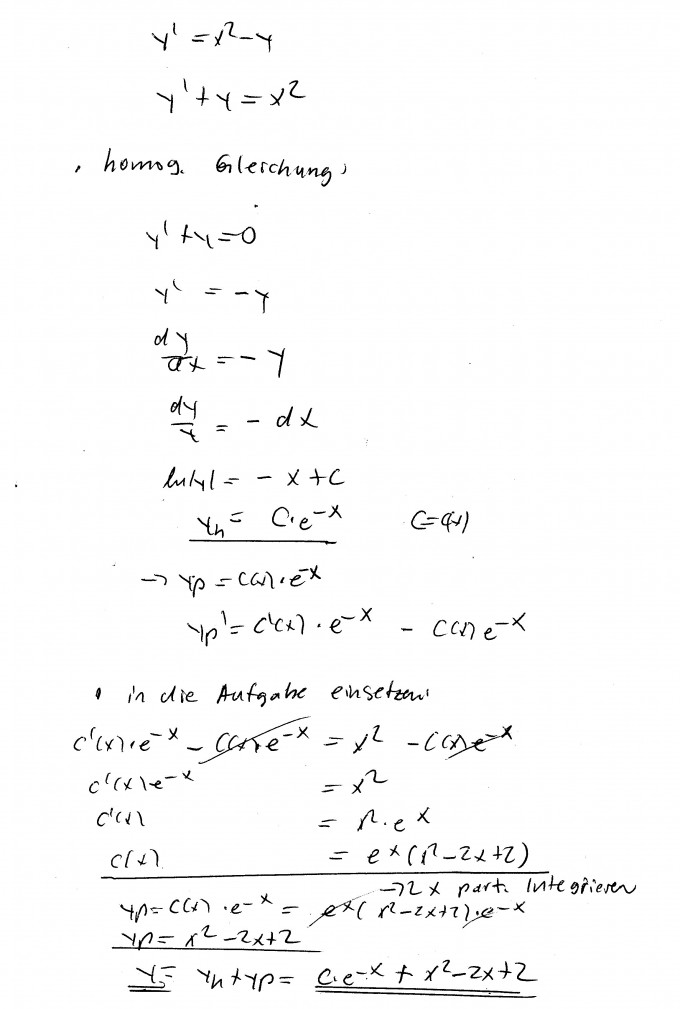 y' = x² - y
y' + y = x²
homog. Gleichung:
y' + y = 0
y' = - y
dy/dx = - y
dy/y = - dx
ln|y| = - x + C
yh = C·e^-x C = C(x)
→ yp = C(x)·e^-x
yp' = C'(x)·e^-x - C(x) e^-x
• in die Aufgabe einsetzen:
C'(x)·e^-x - C(x)·e^-x = x² - C(x)e^-x
C'(x)e^-x = x²
C'(x) = x²·e^x
C(x) = e^x (x² - 2x + 2)
→ 2 x part. Integrieren
yp = C(x)·e^-x = e^x (x² - 2x + 2)·e^-x
yp = x² - 2x + 2
y = yh + yp = C·e^-x + x² - 2x + 2